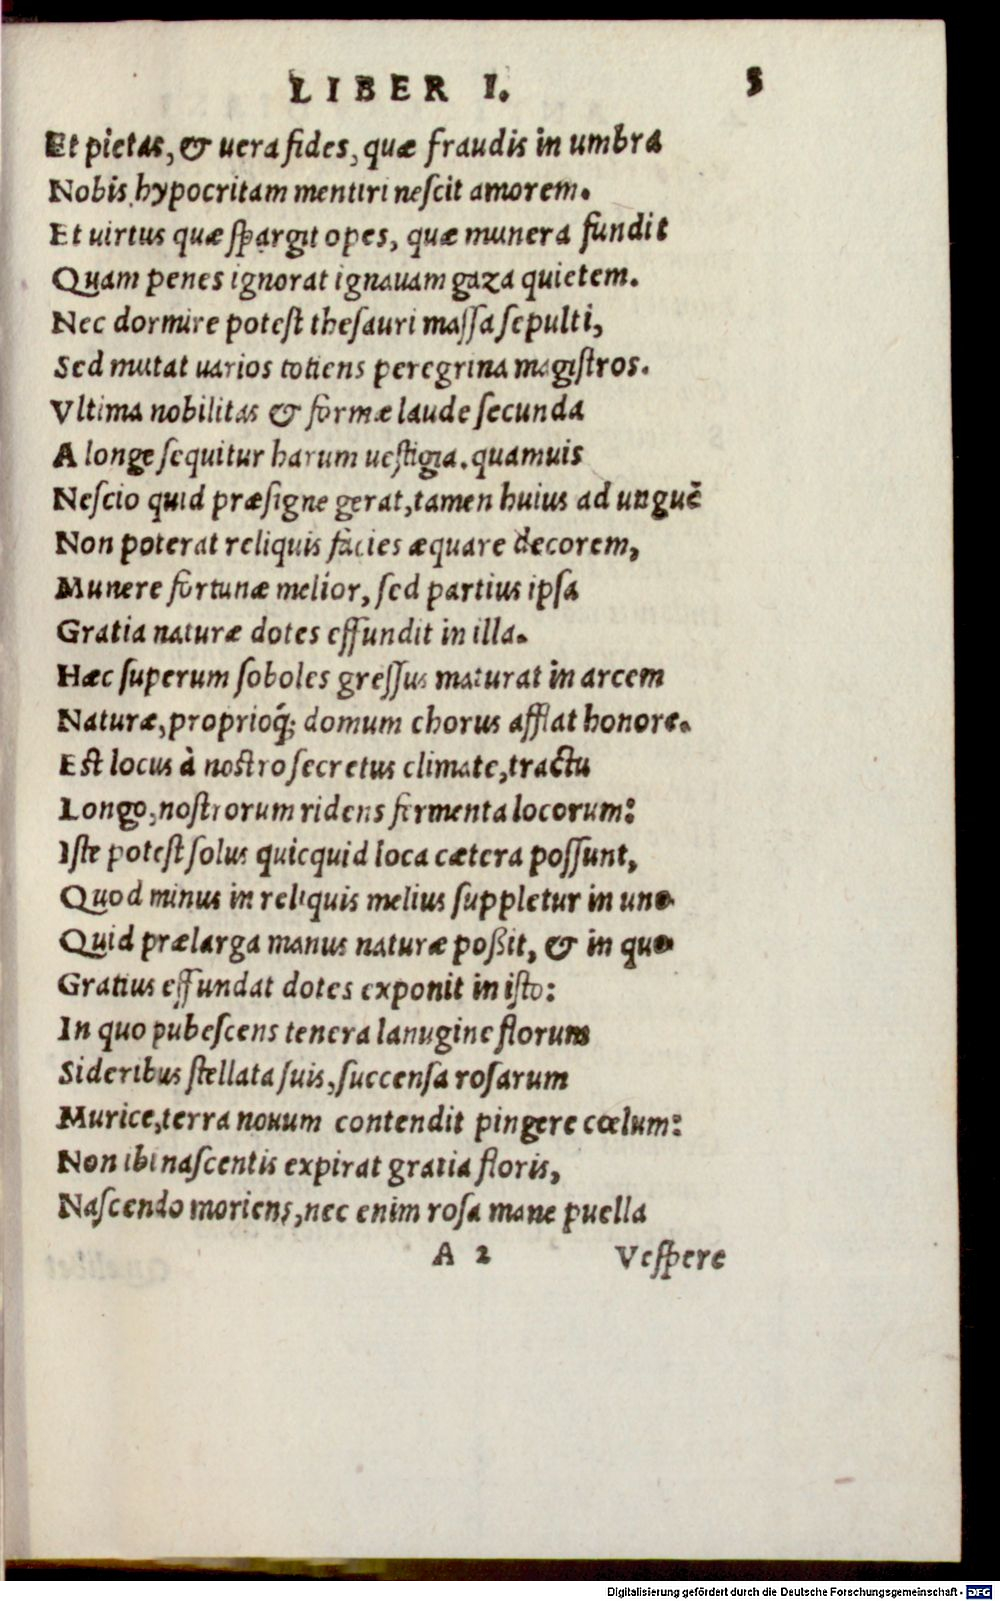 LIBER I. 5
Et pietas, & uera fides, quæ fraudis in umbra
Nobis hypocritam mentiri neſcit amorem.
Et uirtus quæ ſpargit opes, quæ munera fundit
Quam penes ignorat ignauam gaza quietem.
Nec dormire poteſt theſauri maſſa ſepulti,
Sed mutat uarios totiens peregrina magiſtros.
Vltima nobilitas & formæ laude ſecunda
A longe ſequitur harum ueſtigia. quamuis
Neſcio quid præſigne gerat, tamen huius ad unguē
Non poterat reliquis facies æquare decorem,
Munere fortunæ melior, ſed partius ipſa
Gratia naturæ dotes effundit in illa.
Hæc ſuperum ſoboles greſſus maturat in arcem
Naturæ, proprioq́; domum chorus afflat honore.
Eſt locus à noſtro ſecretus climate, tractu
Longo, noſtrorum ridens fermenta locorum:
Iſte poteſt ſolus quicquid loca cætera poſſunt,
Quod minus in reliquis melius ſuppletur in uno
Quid prælarga manus naturæ poßit, & in quo
Gratius effundat dotes exponit in iſto:
In quo pubeſcens tenera lanugine florum
Sideribus ſtellata ſuis, ſuccenſa roſarum
Murice, terra nouum contendit pingere cœlum:
Non ibi naſcentis expirat gratia floris,
Naſcendo moriens, nec enim roſa mane puella
A 2 Veſpere
Digitalisierung gefördert durch die Deutsche Forschungsgemeinschaft - DFG